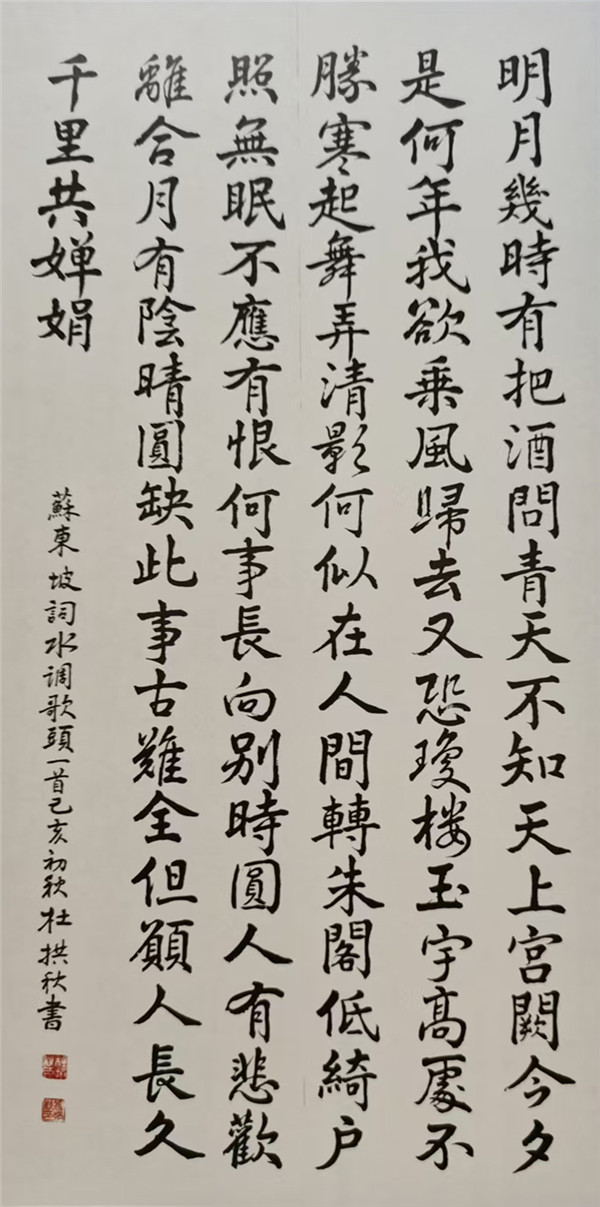 明月幾時有把酒問青天不知天上宮闕今夕
是何年我欲乗風歸去又恐瓊楼玉宇高處不
勝寒起舞弄清影何似在人間轉朱閣低綺户
照無眠不應有恨何事長向别時圓人有悲歡
離合月有陰晴圓缺此事古難全但願人長久
千里共婵娟
蘇東坡詞水调歌頭一首己亥初秋杜拱秋書